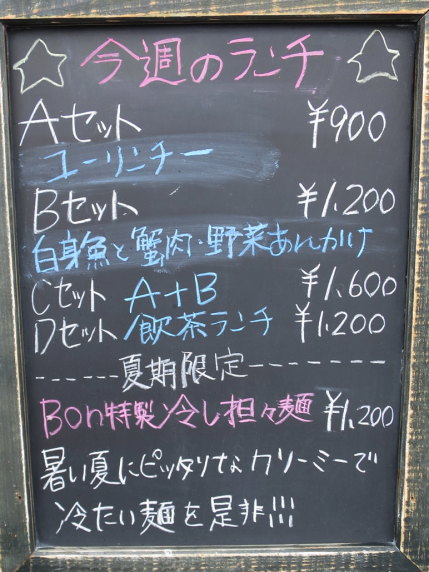 今週のランチ
Aセット ¥900
ユーリンチー
Bセット ¥1,200
白身魚と蟹肉・野菜あんかけ
Cセット A+B ¥1,600
Dセット 飲茶ランチ ¥1,200
------夏期限定-------
Bon特製冷し担々麺 ¥1,200
暑い夏にピッタリなクリーミーで
冷たい麺を是非!!!